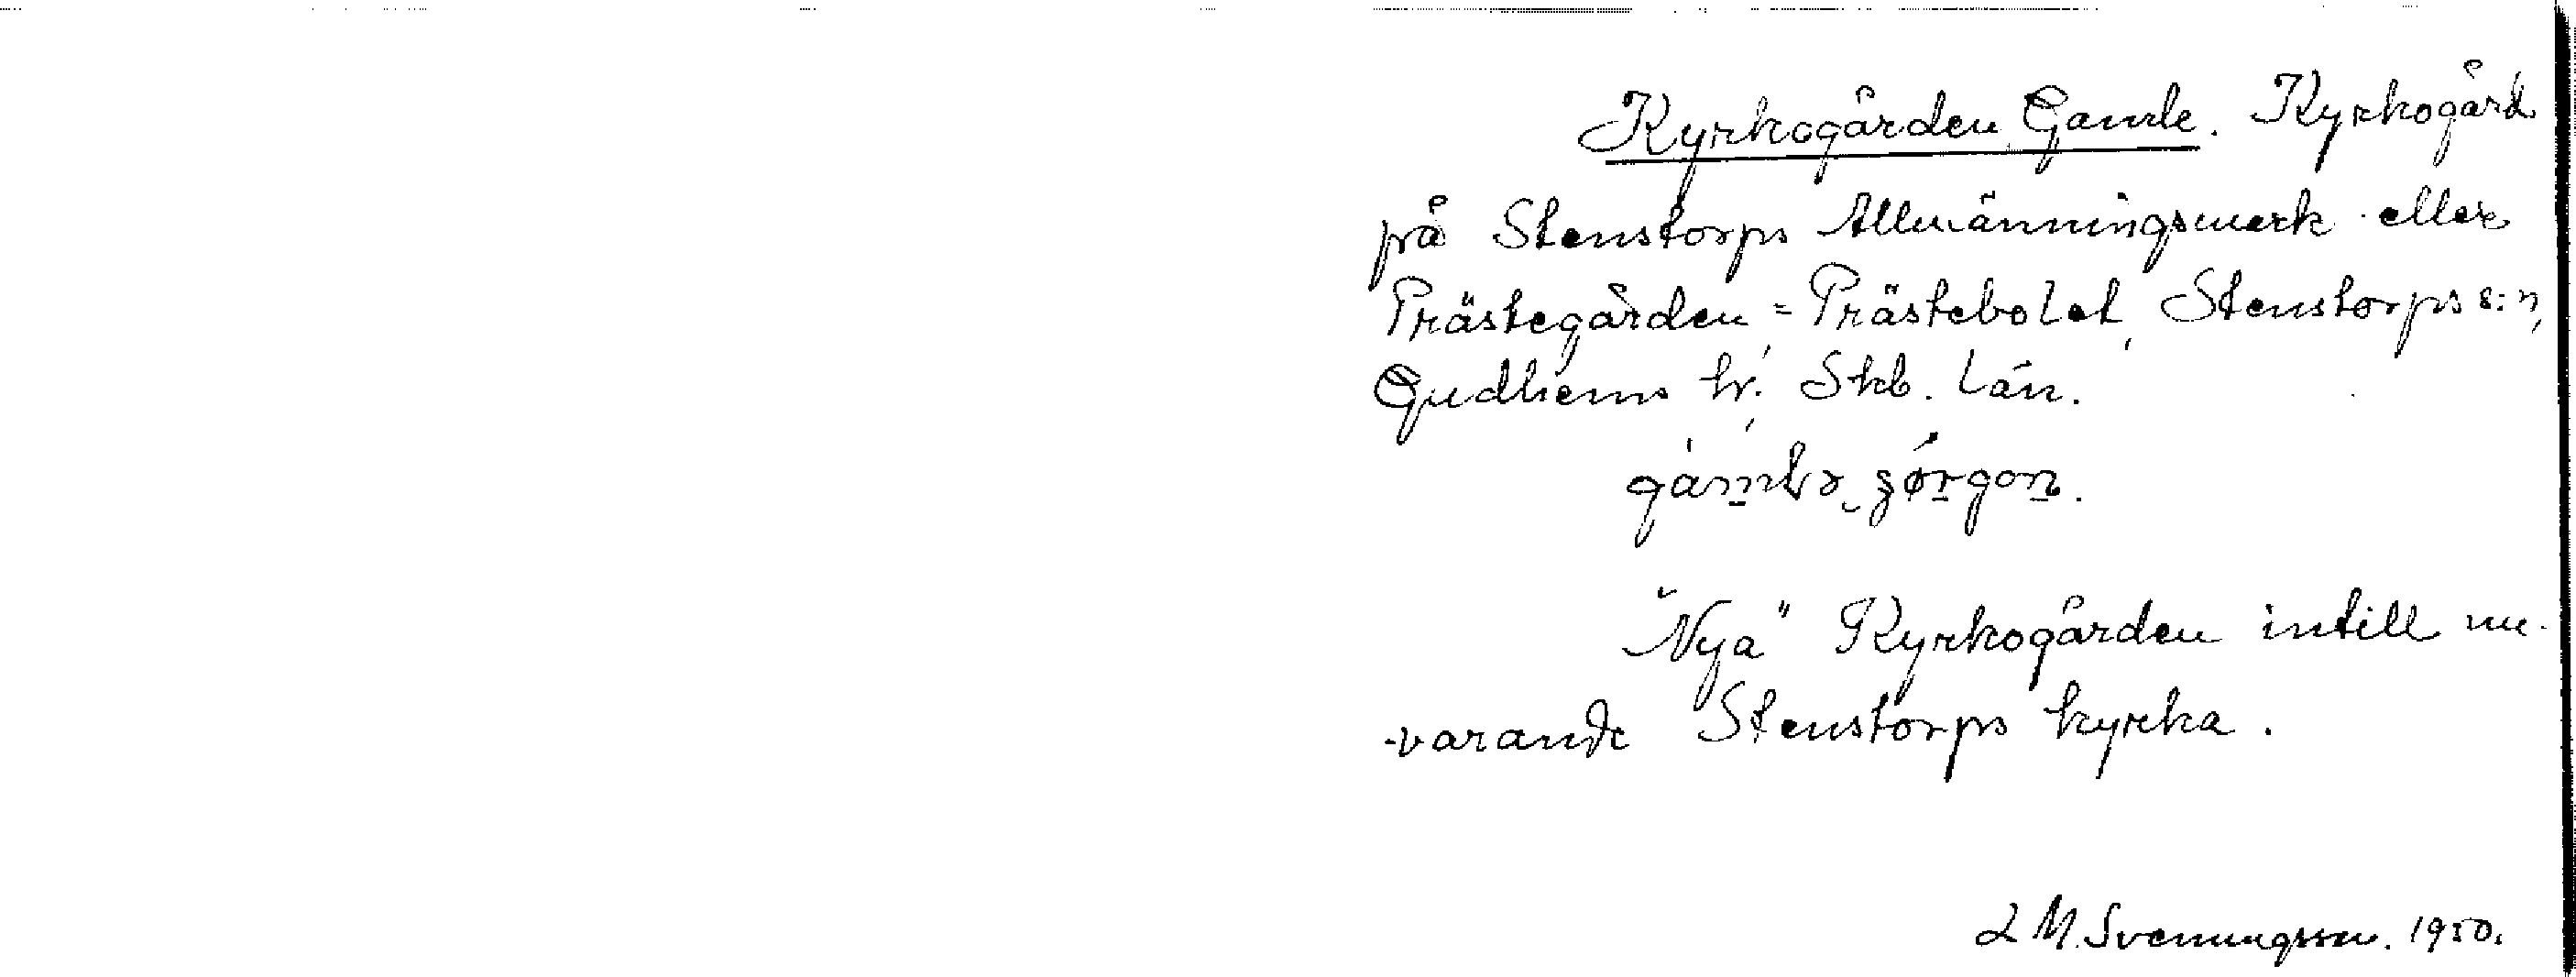 Kyrkogården, Gamle. Kyrkogård
på Stenstorps Allmänningsmark eller
Prästegården = Prästebolet, Stenstorps s:n,
Gudhems hr. Skb. län.
"Nya" Kyrkogården intill nu-
varande Stenstorps kyrka.
L M. Svenungsson. 1950.